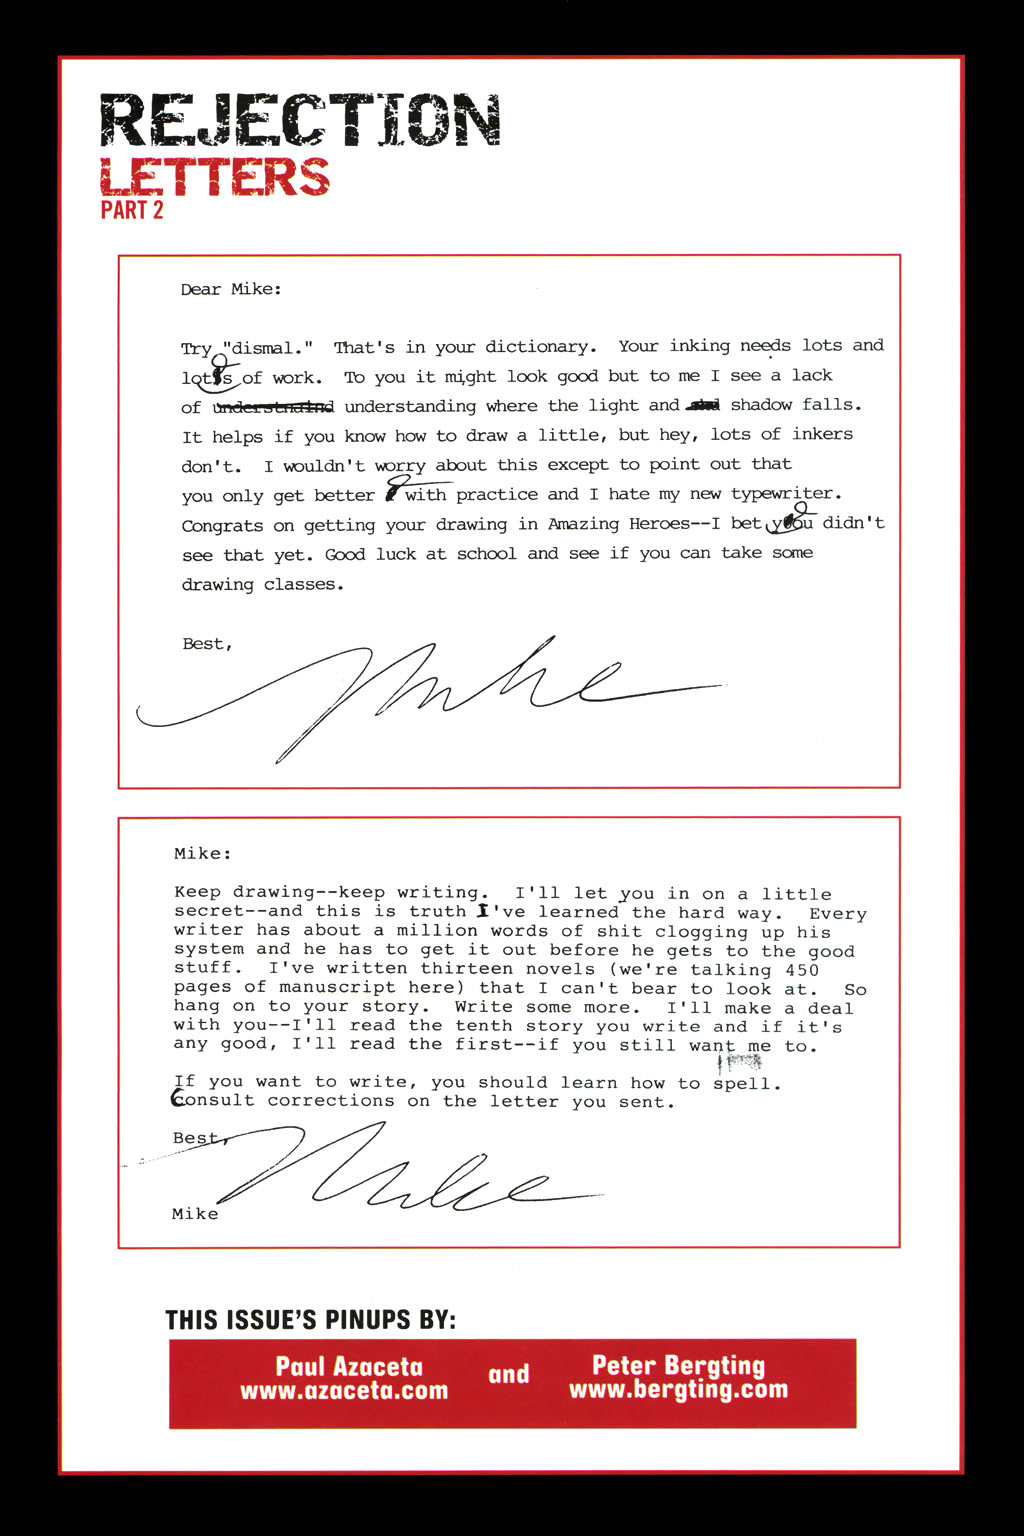 REJECTION
LETTERS
PART 2
Dear Mike:
Try "dismal." That's in your dictionary. Your inking needs lots and
lots of work. To you it might look good but to me I see a lack
of understnaind understanding where the light and shadow falls.
It helps if you know how to draw a little, but hey, lots of inkers
don't. I wouldn't worry about this except to point out that
you only get better with practice and I hate my new typewriter.
Congrats on getting your drawing in Amazing Heroes--I bet you didn't
see that yet. Good luck at school and see if you can take some
drawing classes.
Best,
Mike
Mike:
Keep drawing--keep writing. I'll let you in on a little
secret--and this is truth I've learned the hard way. Every
writer has about a million words of shit clogging up his
system and he has to get it out before he gets to the good
stuff. I've written thirteen novels (we're talking 450
pages of manuscript here) that I can't bear to look at. So
hang on to your story. Write some more. I'll make a deal
with you--I'll read the tenth story you write and if it's
any good, I'll read the first--if you still want me to.
If you want to write, you should learn how to spell.
Consult corrections on the letter you sent.
Best,
Mike
Mike
THIS ISSUE'S PINUPS BY:
Paul Azaceta and Peter Bergting
www.azaceta.com www.bergting.com